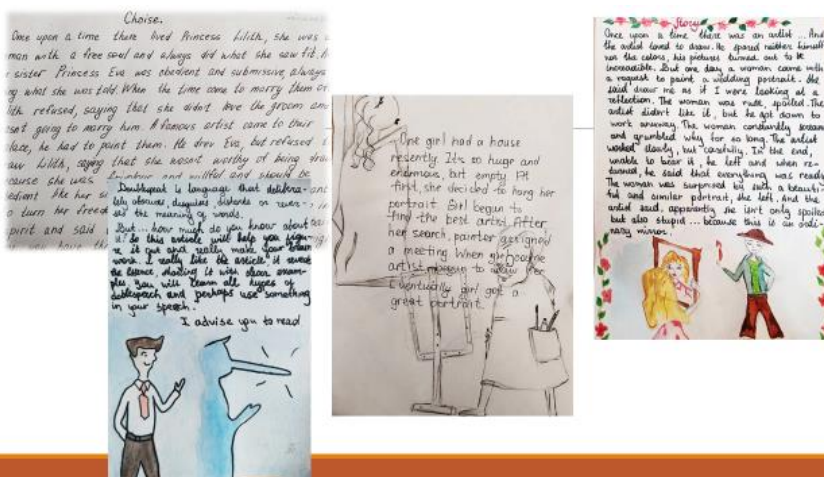 Choise.
Once upon a time there lived Princess Lilith, she was
man with a free soul and always did what she saw fit.
sister Princess Eva was obedient and submissive always
ng what she was told. When the time came to marry them
lith refused, saying that she didn't love the groom and
sn't going to marry him. A famous artist came to their
lace, he had to paint them. He drew Eva, but refused
aw Lilith, saying that she wasn't worthy of being
cause she was and willful and should be
edient like her
o turn her freed
pirit and said
Doublespeak is language that delibera-
tely obscures, disguises, distorts or rever-
ses the meaning of words.
But... how much do you know about
it? So this article will help you figu-
re it out and really make your brain
work. I really like the article: it reveals
the essence, sharing it with clear exam-
ples. You will learn all types of
and perhaps use something
in your speech.
I advise you to read
One girl had a house
recently. It's so huge and
enormous, but empty. At
first, she decided to hang her
portrait. Girl began to
find the best artist. After
her search, painter assigned
a meeting. When girl
artist to draw her
Eventually girl got a
great portrait.
Story
Once upon a time there was an artist ... And
the artist loved to draw. He spared neither himself
nor the colors, his pictures turned out to be
incredible. But one day a woman came with
a request to paint a wedding portrait. She
said draw me as if I were looking at a
reflection. The woman was rude, spoiled. The
artist didn't like it, but he got down to
work anyway. The woman constantly
and grumbled why for so long. The artist
worked slowly, but carefully. In the end,
unable to bear it, he left and when re-
turned, he said that everything was ready.
The woman was surprised by such a beauti-
ful and similar portrait, she left. And the
artist said, apparently she isn't only spoiled
but also stupid ... because this is an ordi-
nary mirror.